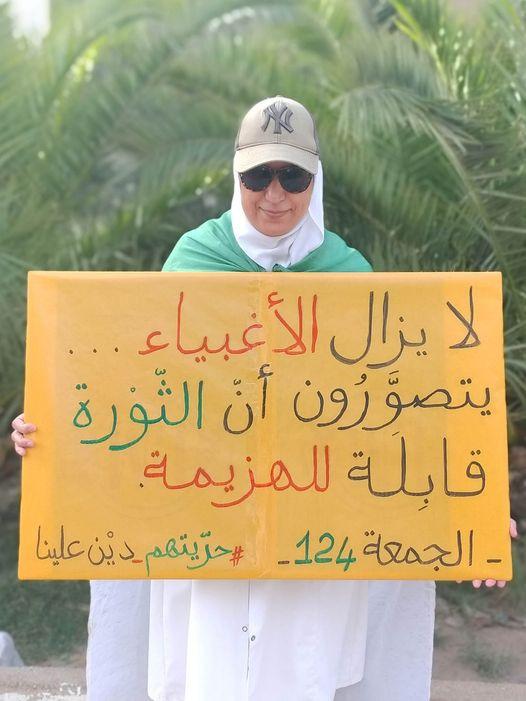 NY
لا يزال الأغبياء ...
يتصوَّرُون أنّ الثّوْرة
قابِلَة للهزيمة.
ـ الجمعة 124 ـ #حرّيتهم_ديْن علينا